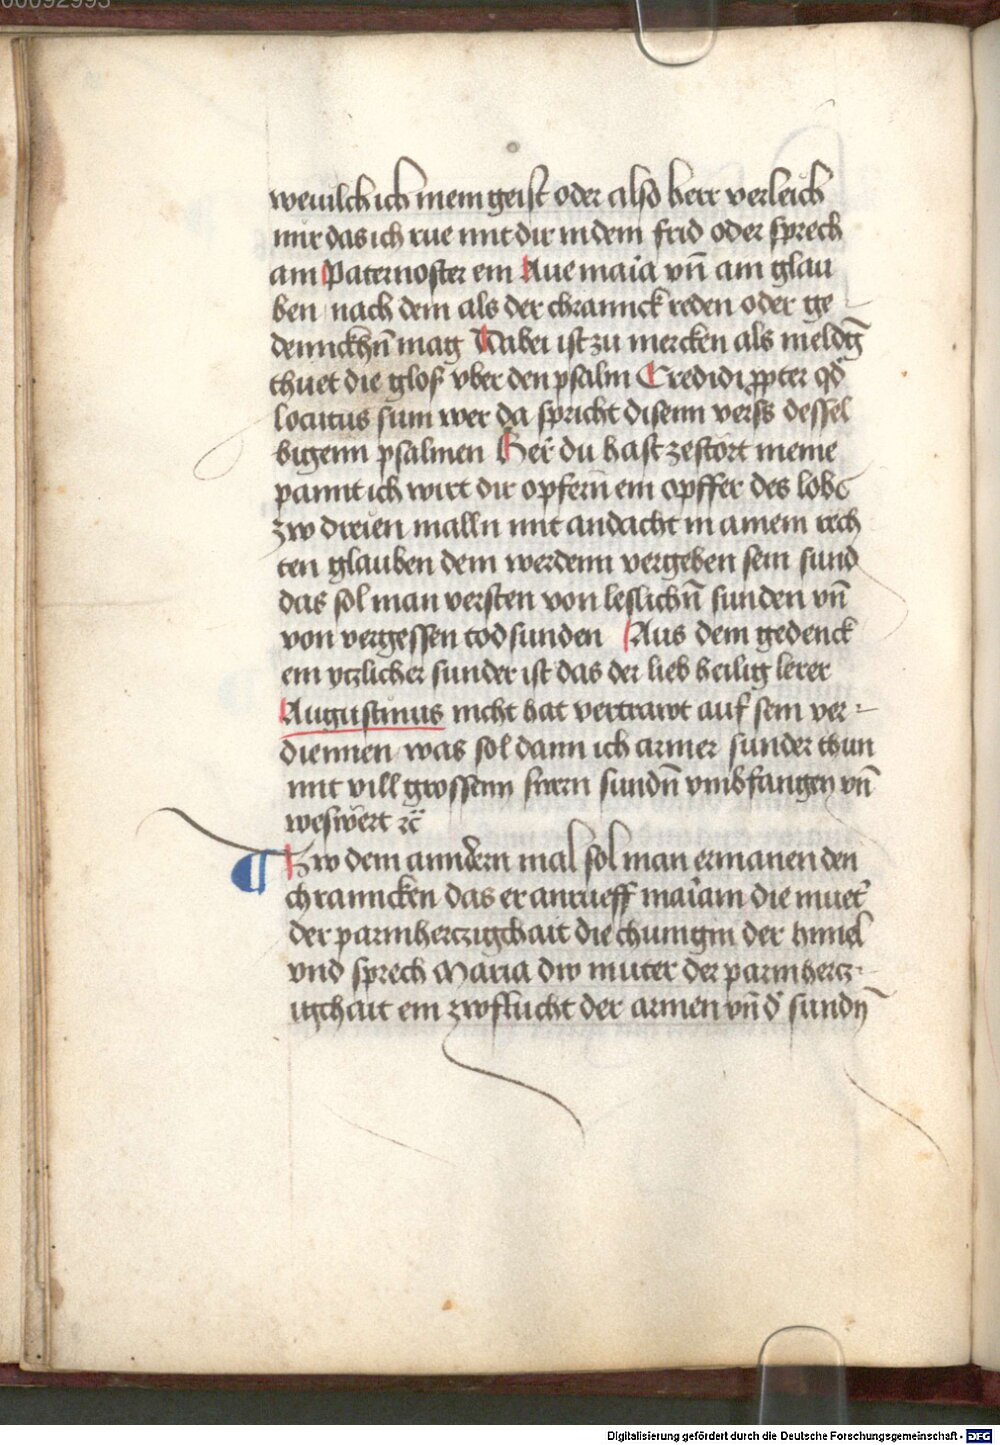 00092993
wevilch ich mein geist oder also herr verleich
mir das ich rue mit dir in dem frid oder sprech
ain Paternoster ein Aue maīa vn̄ ain glau
ben nach dem als der chrannck reden oder ge
dennckhn̄ mag Dabei ist zu mercken als meldḡ
thuet die glosß vber den psalm Credidi ꝓpter qd̄
locutus sum wer da spricht disenn verss dessel
bigenn psalmen Her̄ du hast zestört meine
pannt ich wirt dir opfern̄ ein opffer des lobs
zw dreien malln mit andacht in ainem rech
ten glauben dem werdenn vergeben sein sund
das sol man versten von leslichn̄ sunden vn̄
von vergessen tod sunden Aus dem gedenck
ein yczlicher sunder ist das der lieb heilig lerer
Augustinus nicht hat vertrawt auf sein ver-
diennen was sol dann ich armer sunder thun
mit vill grossenn swern sundn̄ vmbfangen vn̄
weswērt ꝛc̄
¶ Zw dem anndern mal sol man ermanen den
chranncken das er anrueff maīam die muet̄
der parmherczigchait die chunigin der himel
vnd sprech Maria dw muter der parmhercz-
igchait ein zwflucht der armen vn̄ d̄ sundn̄
Digitalisierung gefördert durch die Deutsche Forschungsgemeinschaft - DFG